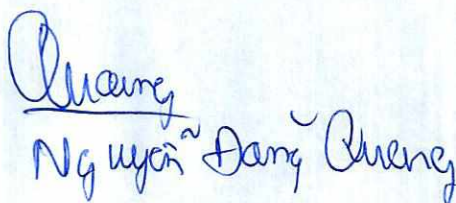 Quang
Nguyễn Đăng Quang